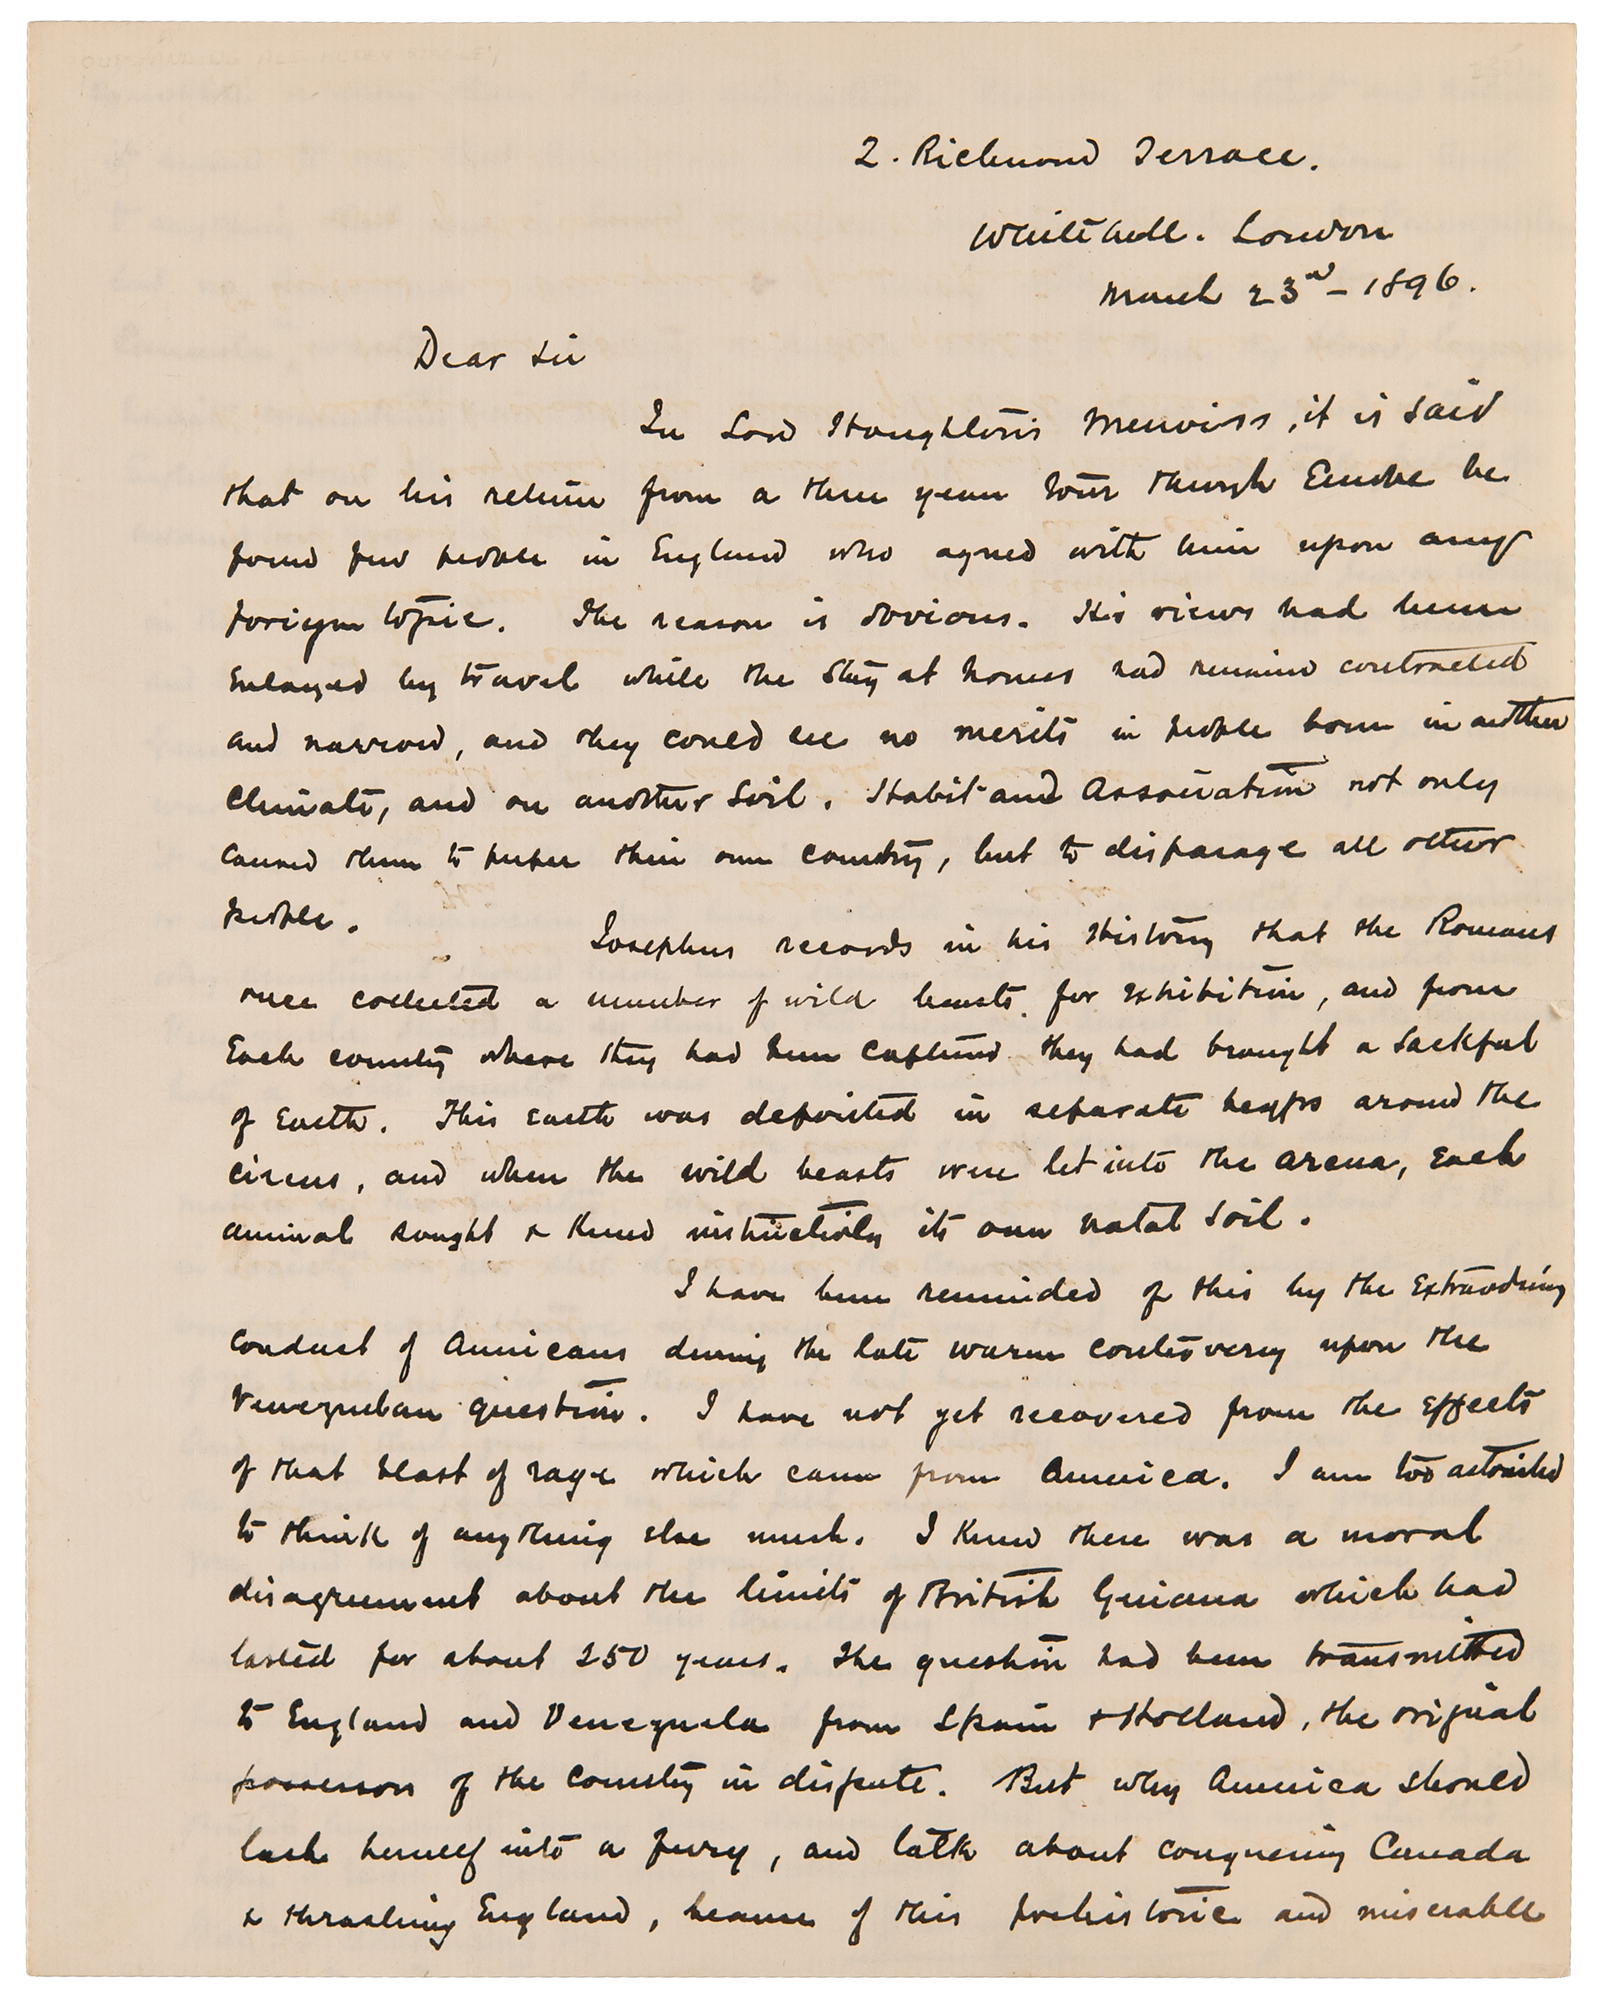 2. Richmond Terrace.
Whitehall. London
March 23rd – 1896.
Dear Sir
In Lord Houghton's Memoirs, it is said
that on his return from a three years tour through Europe he
found few people in England who agreed with him upon any
foreign topic. The reason is obvious. His views had been
enlarged by travel while the stay at homes had remained contracted
and narrow, and they could see no merits in people born in another
climate, and on another soil. Habit and Association not only
caused them to prefer their own country, but to disparage all other
people.
Josephus records in his History that the Romans
once collected a number of wild beasts for exhibition, and from
each country where they had been captured they had brought a sackful
of earth. This earth was deposited in separate heaps around the
circus, and when the wild beasts were let into the arena, each
animal sought & knew instinctively its own natal soil.
I have been reminded of this by the extraordinary
conduct of Americans during the late warm controversy upon the
Venezuelan question. I have not yet recovered from the effects
of that blast of rage which came from America. I am too astonished
to think of anything else much. I knew there was a moral
disagreement about the limits of British Guiana which had
lasted for about 250 years. The question had been transmitted
to England and Venezuela from Spain & Holland, the original
possessors of the country in dispute. But why America should
lash herself into a fury, and talk about conquering Canada
& thrashing England, because of this prehistoric and miserable